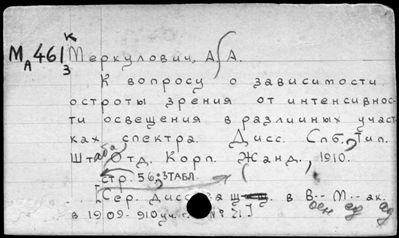 К
МА 461 Меркулович, А. А.
3
К вопросу о зависимости
остроты зрения от интенсивнос-
ти освещения в различных участ-
ках спектра. Дисс. Спб., Тип.
Штаба Отд. Корп. Жанд., 1910.
стр. 56, 3 ТАБЛ.
[Сер. дисс. защ. в В. М. ак.
воен ед ад
в 1909-910 уч. № 21]